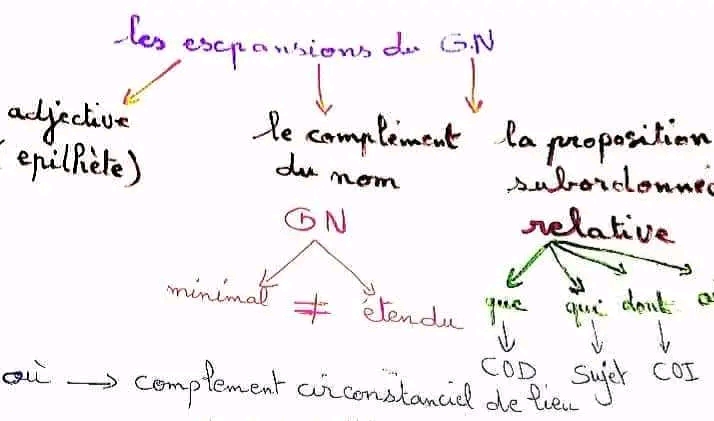 les escpansions du G.N
adjective
(epilhète)
le complément
du nom
la proposition
subordonnée
relative
GN
minimal ≠ étendu
que qui dont
COD Sujet COI
où → complement circonstanciel de lieu